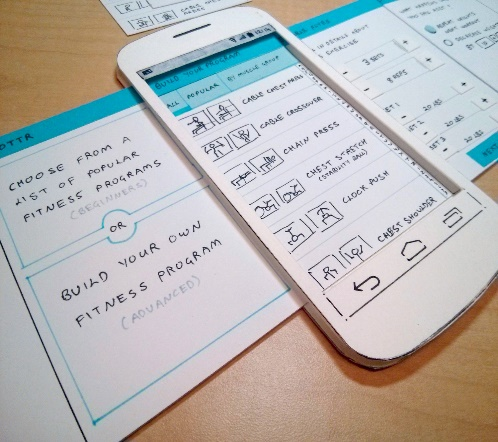 OTTR
CHOOSE FROM A
LIST OF POPULAR
FITNESS PROGRAMS
(BEGINNERS)
OR
BUILD YOUR OWN
FITNESS PROGRAM
(ADVANCED)
BUILD YOUR PROGRAM
ALL POPULAR BY MUSCLE GROUP
CABLE CHEST PRESS
CABLE CROSSOVER
CHAIN PRESS
CHEST STRETCH
(STABILITY BALL)
CLOCK PUSH
IN DETAILS ABOUT
EXERCISE
- 3 SETS
- 8 REPS
SET 1 20 LBS
SET 2 20 LBS
SET 3 20 LBS